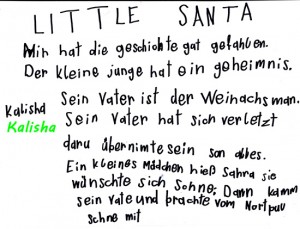 LITTLE SANTA
Mir hat die geschichte gat gefahlen.
Der kleine junge hat ein geheimnis.
Sein Vater ist der Weinachsman.
Kalisha
Kalisha
Sein Vater hat sich verletzt
daru übernimte sein son alles.
Ein kleines Mädchen hieß Sahra sie
wünschte sich Sohne; Dann kamm
sein vate und brachte vom Nortpuu
Schne mit